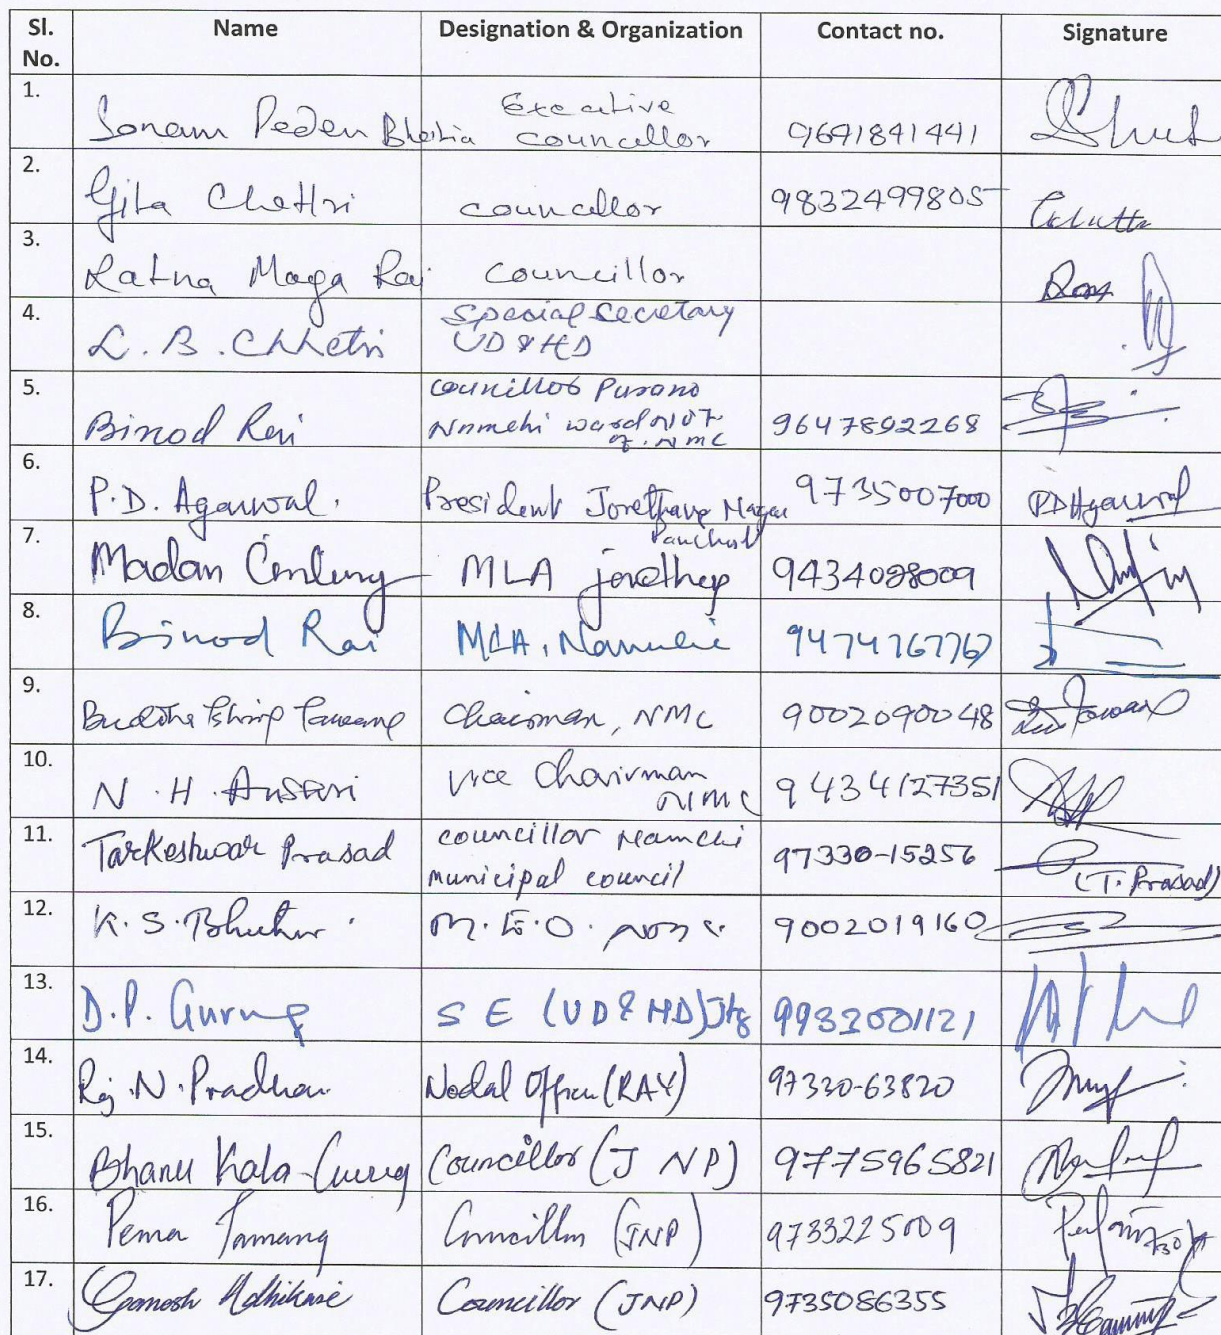 Sl. No. Name Designation & Organization Contact no. Signature
1. Sonam Peden Bhutia Executive councellor 9641841441
2. Gita Chettri councellor 9832499805
3. Ratna Maya Rai Councillor
4. L. B. Chhetri Special Secretary UD & HD
5. Binod Rai Councillor Purano Namchi ward NO 7. of. NMC 9647892268
6. P.D. Agarwal. President Jorethang Nagar Panchayat 9735007000 PDAgarwal
7. Madan Cintury MLA jorethang 9434098009
8. Binod Rai MLA, Namchi 9474767767
9. Buddha Tshring Tamang Chairman, NMC 9002090048
10. N. H. Ansari Vice Chairman NMC 9434127351
11. Tarkeshwar Prasad councillor Namchi municipal council 97330-15256 (T. Prasad)
12. K. S. Bhutia. M.E.O. NMC. 9002019160
13. D.P. Gurung S E (UD & HD) Jtg 9932001121
14. Raj. N. Pradhan Nodal Officer (RAY) 97330-63820
15. Bhanu Kala Gurung Councillor (J NP) 9775965821
16. Pema Tamang Councillor (JNP) 9733225009
17. Ganesh Adhikari Councillor (JNP) 9735086355